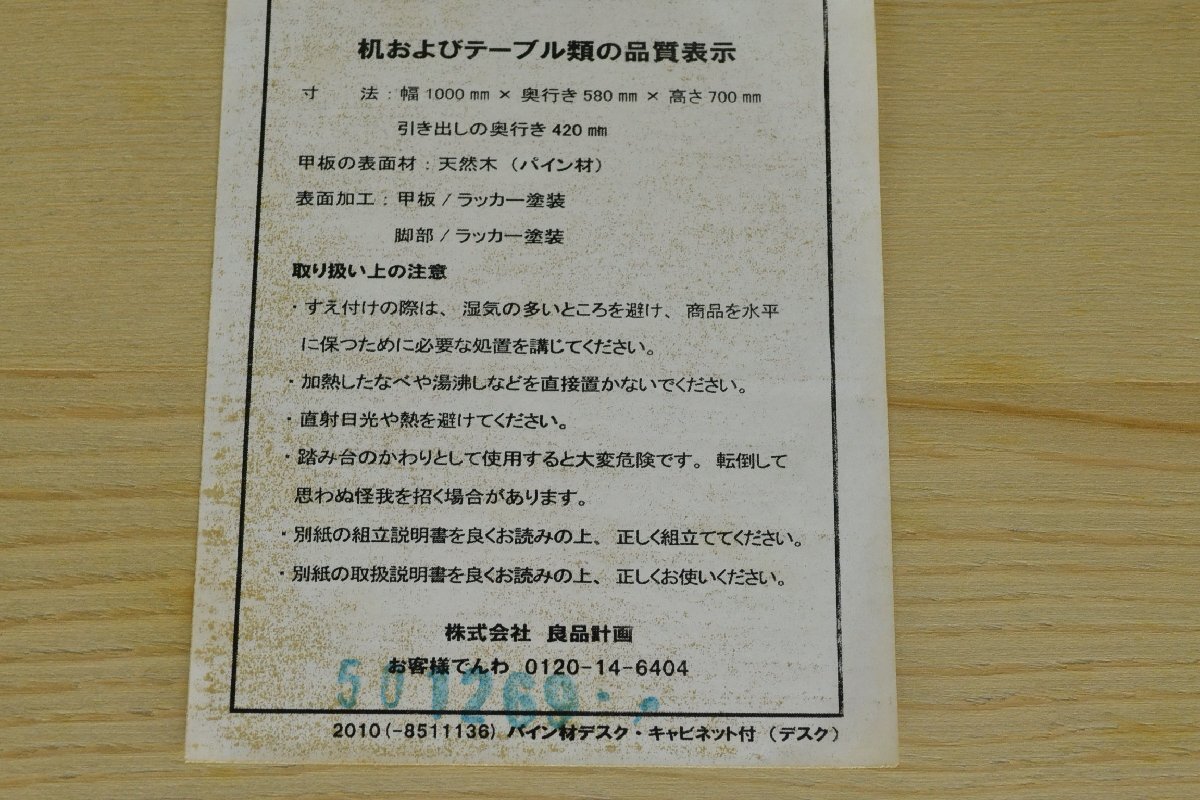 机およびテーブル類の品質表示
寸　　法：幅 1000 mm × 奥行き 580 mm × 高さ 700 mm
引き出しの奥行き 420 mm
甲板の表面材：天然木（パイン材）
表面加工：甲板 / ラッカー塗装
脚部 / ラッカー塗装
取り扱い上の注意
・すえ付けの際は、湿気の多いところを避け、商品を水平
に保つために必要な処置を講じてください。
・加熱したなべや湯沸しなどを直接置かないでください。
・直射日光や熱を避けてください。
・踏み台のかわりとして使用すると大変危険です。転倒して
思わぬ怪我を招く場合があります。
・別紙の組立説明書を良くお読みの上、正しく組立ててください。
・別紙の取扱説明書を良くお読みの上、正しくお使いください。
株式会社 良品計画
お客様でんわ 0120-14-6404
501269
2010 (-8511136) パイン材デスク・キャビネット付（デスク）